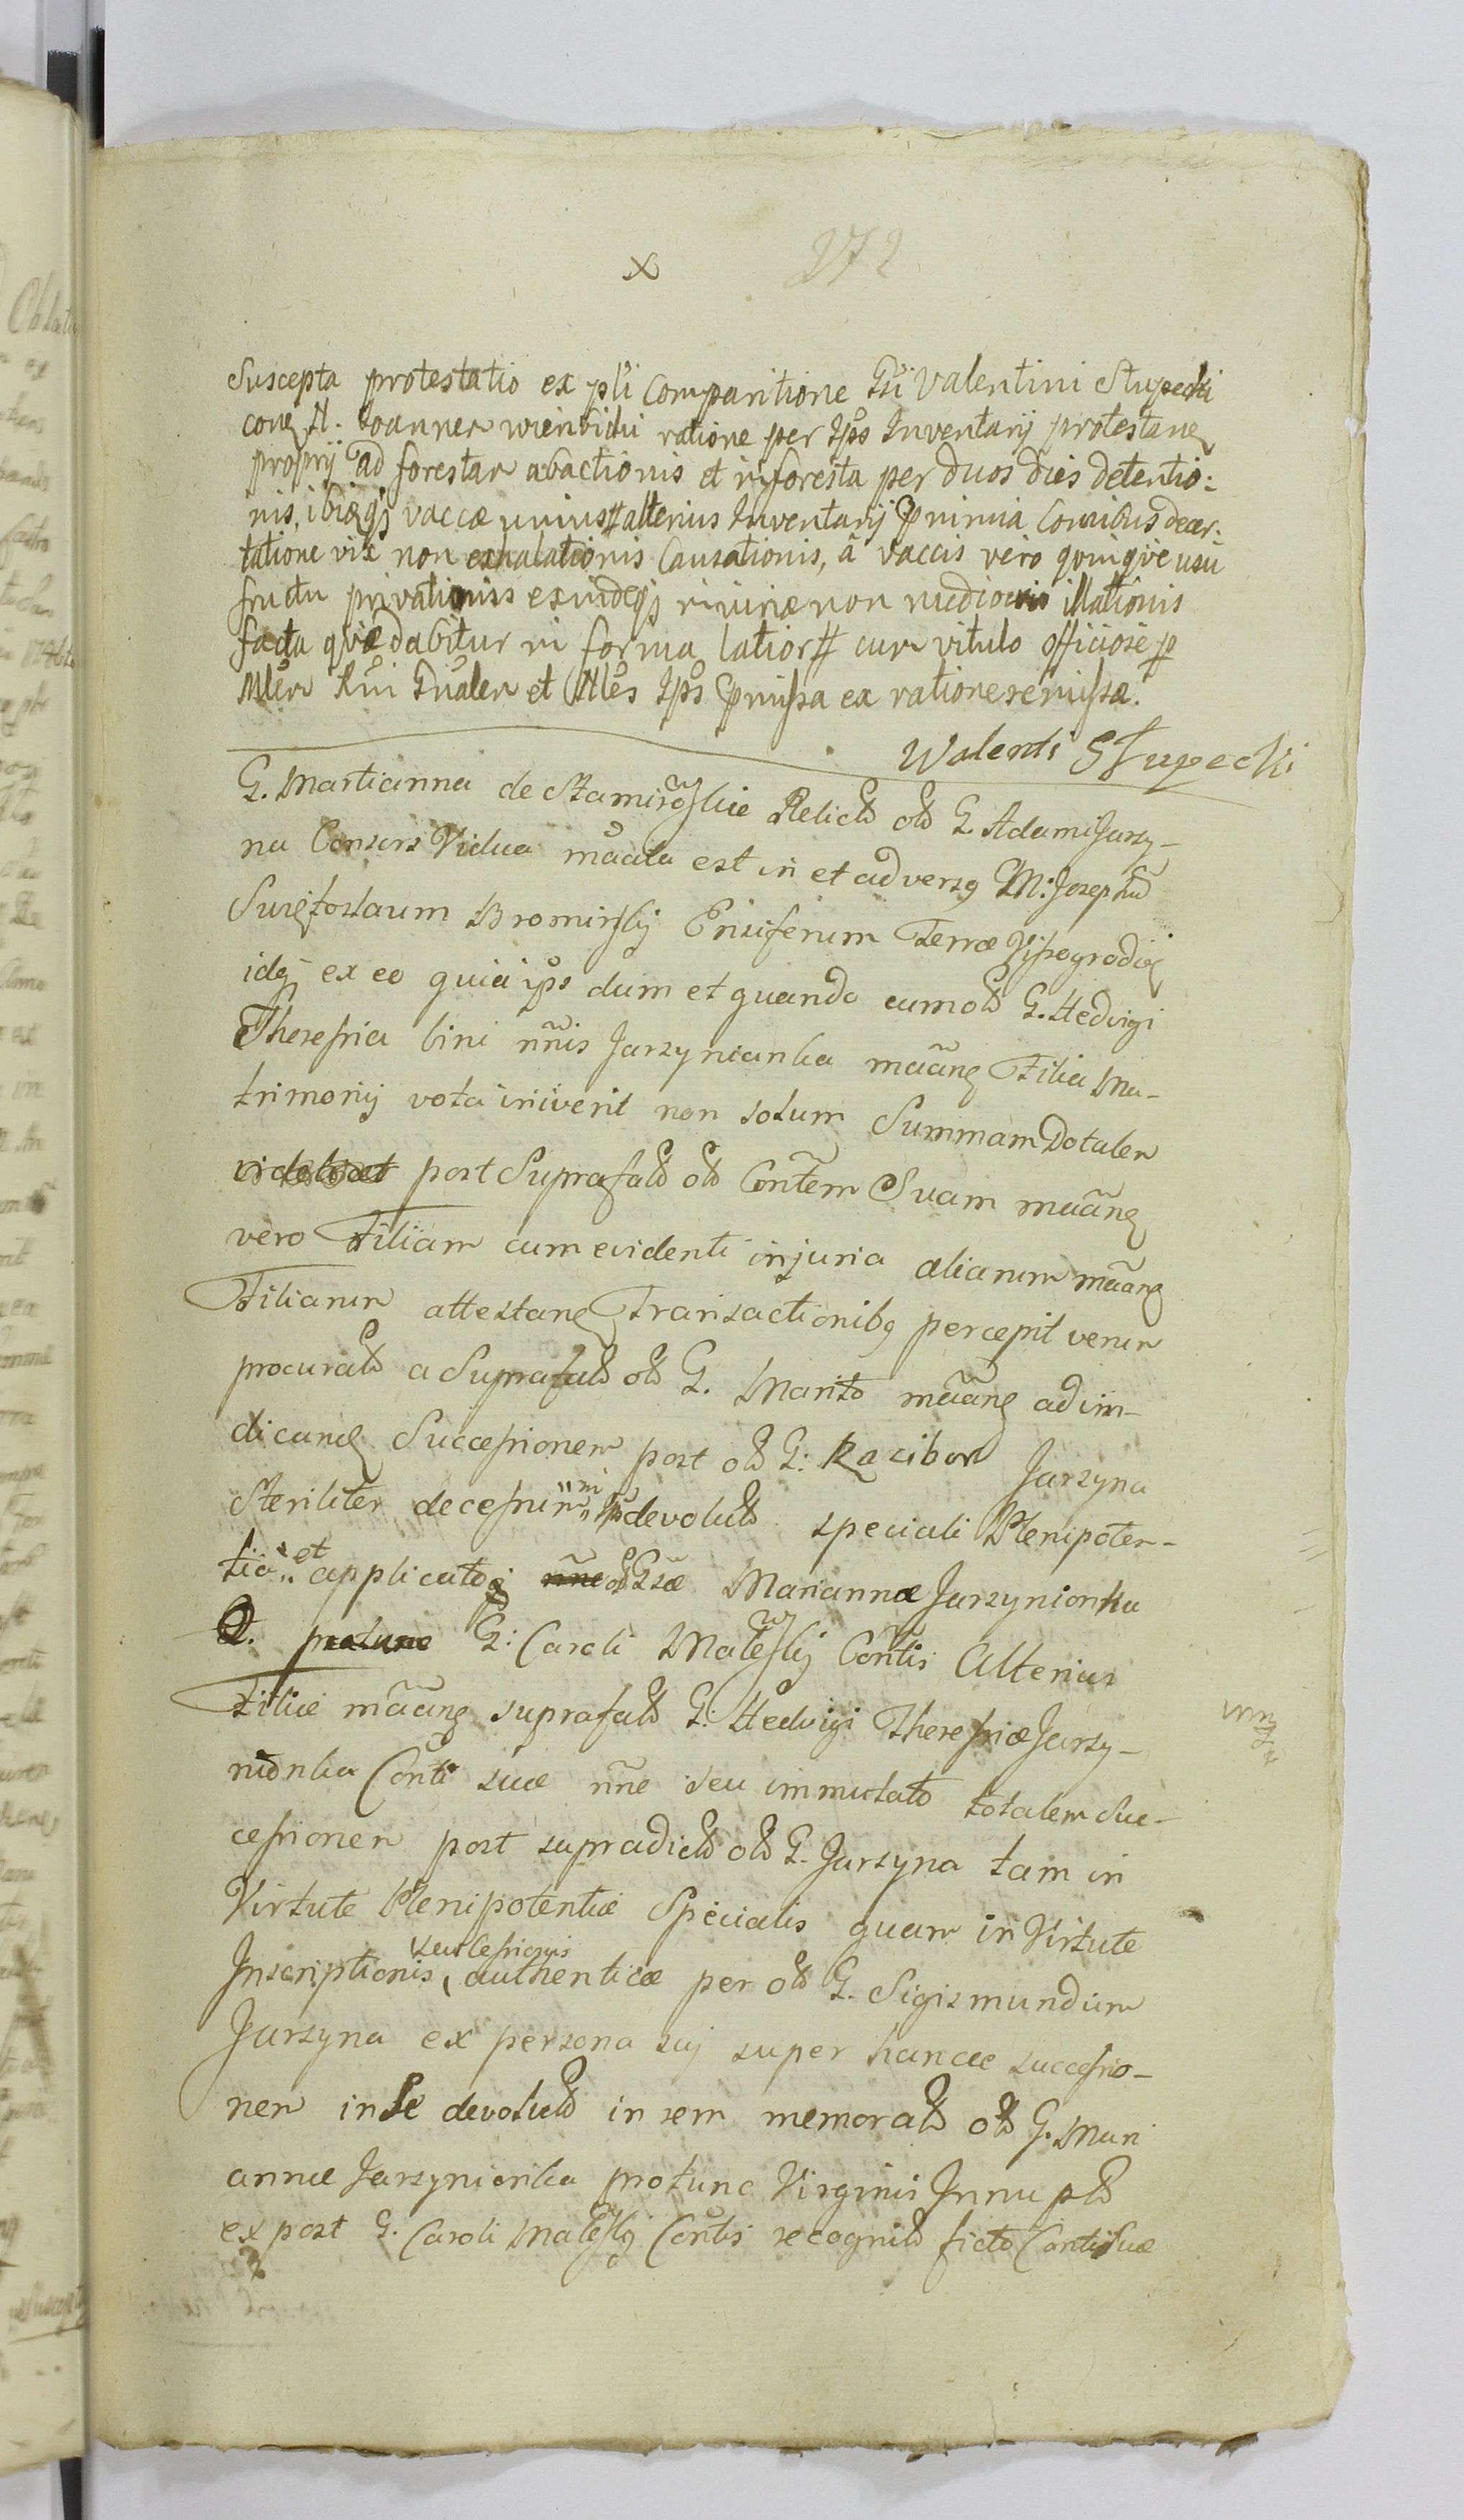 272
x
Suscepta protestatio ex pli Comparitione Gsi Valentini Stupecki
ratione per Ipo Inventarij protestane
proprij ad forestam abactionis et in foresta per duos dies detentio:
nis, ibidqs vaccæ unius alterius Inventarij Cornibus decer:
tatione vix non exhalationis Causationis, á vaccis vero quinqve usu
fructu privationis exindeqs iniuriæ non mediocris illationis
facta qvæ dabitur in forma latiori cum vitulo officiose
et præmissa ea ratione remissa.
Walenti Stupecki
G. Martianna de Relicta olb G. Adami Jarzy-
na Consors Vidua est in et adversq M: Josephū
Ensiferum Terræ Vissogrodiē
idq ex eo quia ips dum et quando cum olb G. Hedvigi
Theressia bini nñis Jarzynianka mãang Filia Ma-
trimonij vota iniverit non solum Summam Dotalem
post Suprafatā olb Contem Suam mãang
vero Filiam cum evidenti injuria aliarum mãang
Filiarum attestane Transactionibq percepit verum
procurata a Suprafato olb G. Marito mãang ad vin-
dicand Successionem post olb G: Racibord Jarzyna
Steriliter decessum devoluta speciali Plenipoten-
tia et applicato Gsæ Mariannæ Jarzynionka
G: Caroli Contis Alterius
Filiæ mãang suprafatā G: Hedvigi Theressiæ Jarzy-
nionka Conti suæ nñe seu immutato totalem Suc-
cessionem post supradictū olb G. Jarzyna tam in
Virtute Plenipotentiæ Specialis quam in Virtute
Inscriptionis seu Cessionis authenticæ per olb G. Sigismundum
Jarzyna ex persona sui super hancce successio-
nem in Se devoluta in rem memorata olb G. Mari
annæ Jarzynionka protunc Virginis Innupta
expost G. Caroli Contis recognita ficto Conti Suæ